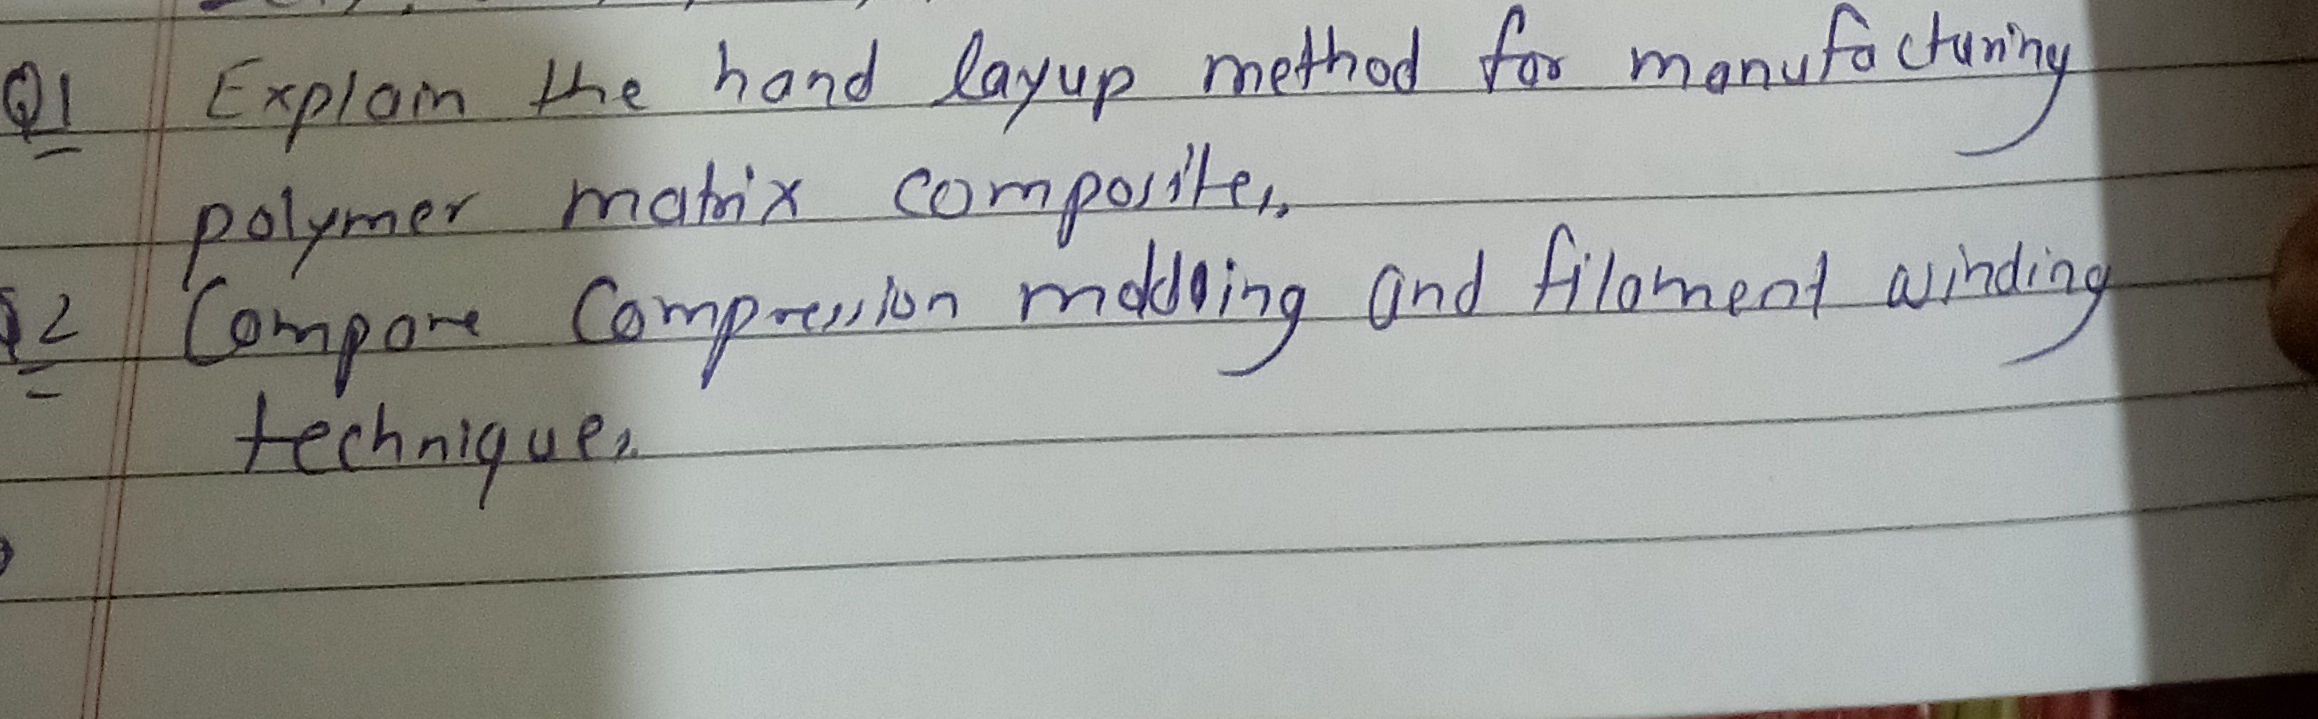 Q1 Explain the hand layup method for manufacturing
polymer matrix composites.
Q2 Compare Compression molding and filament winding
techniques.